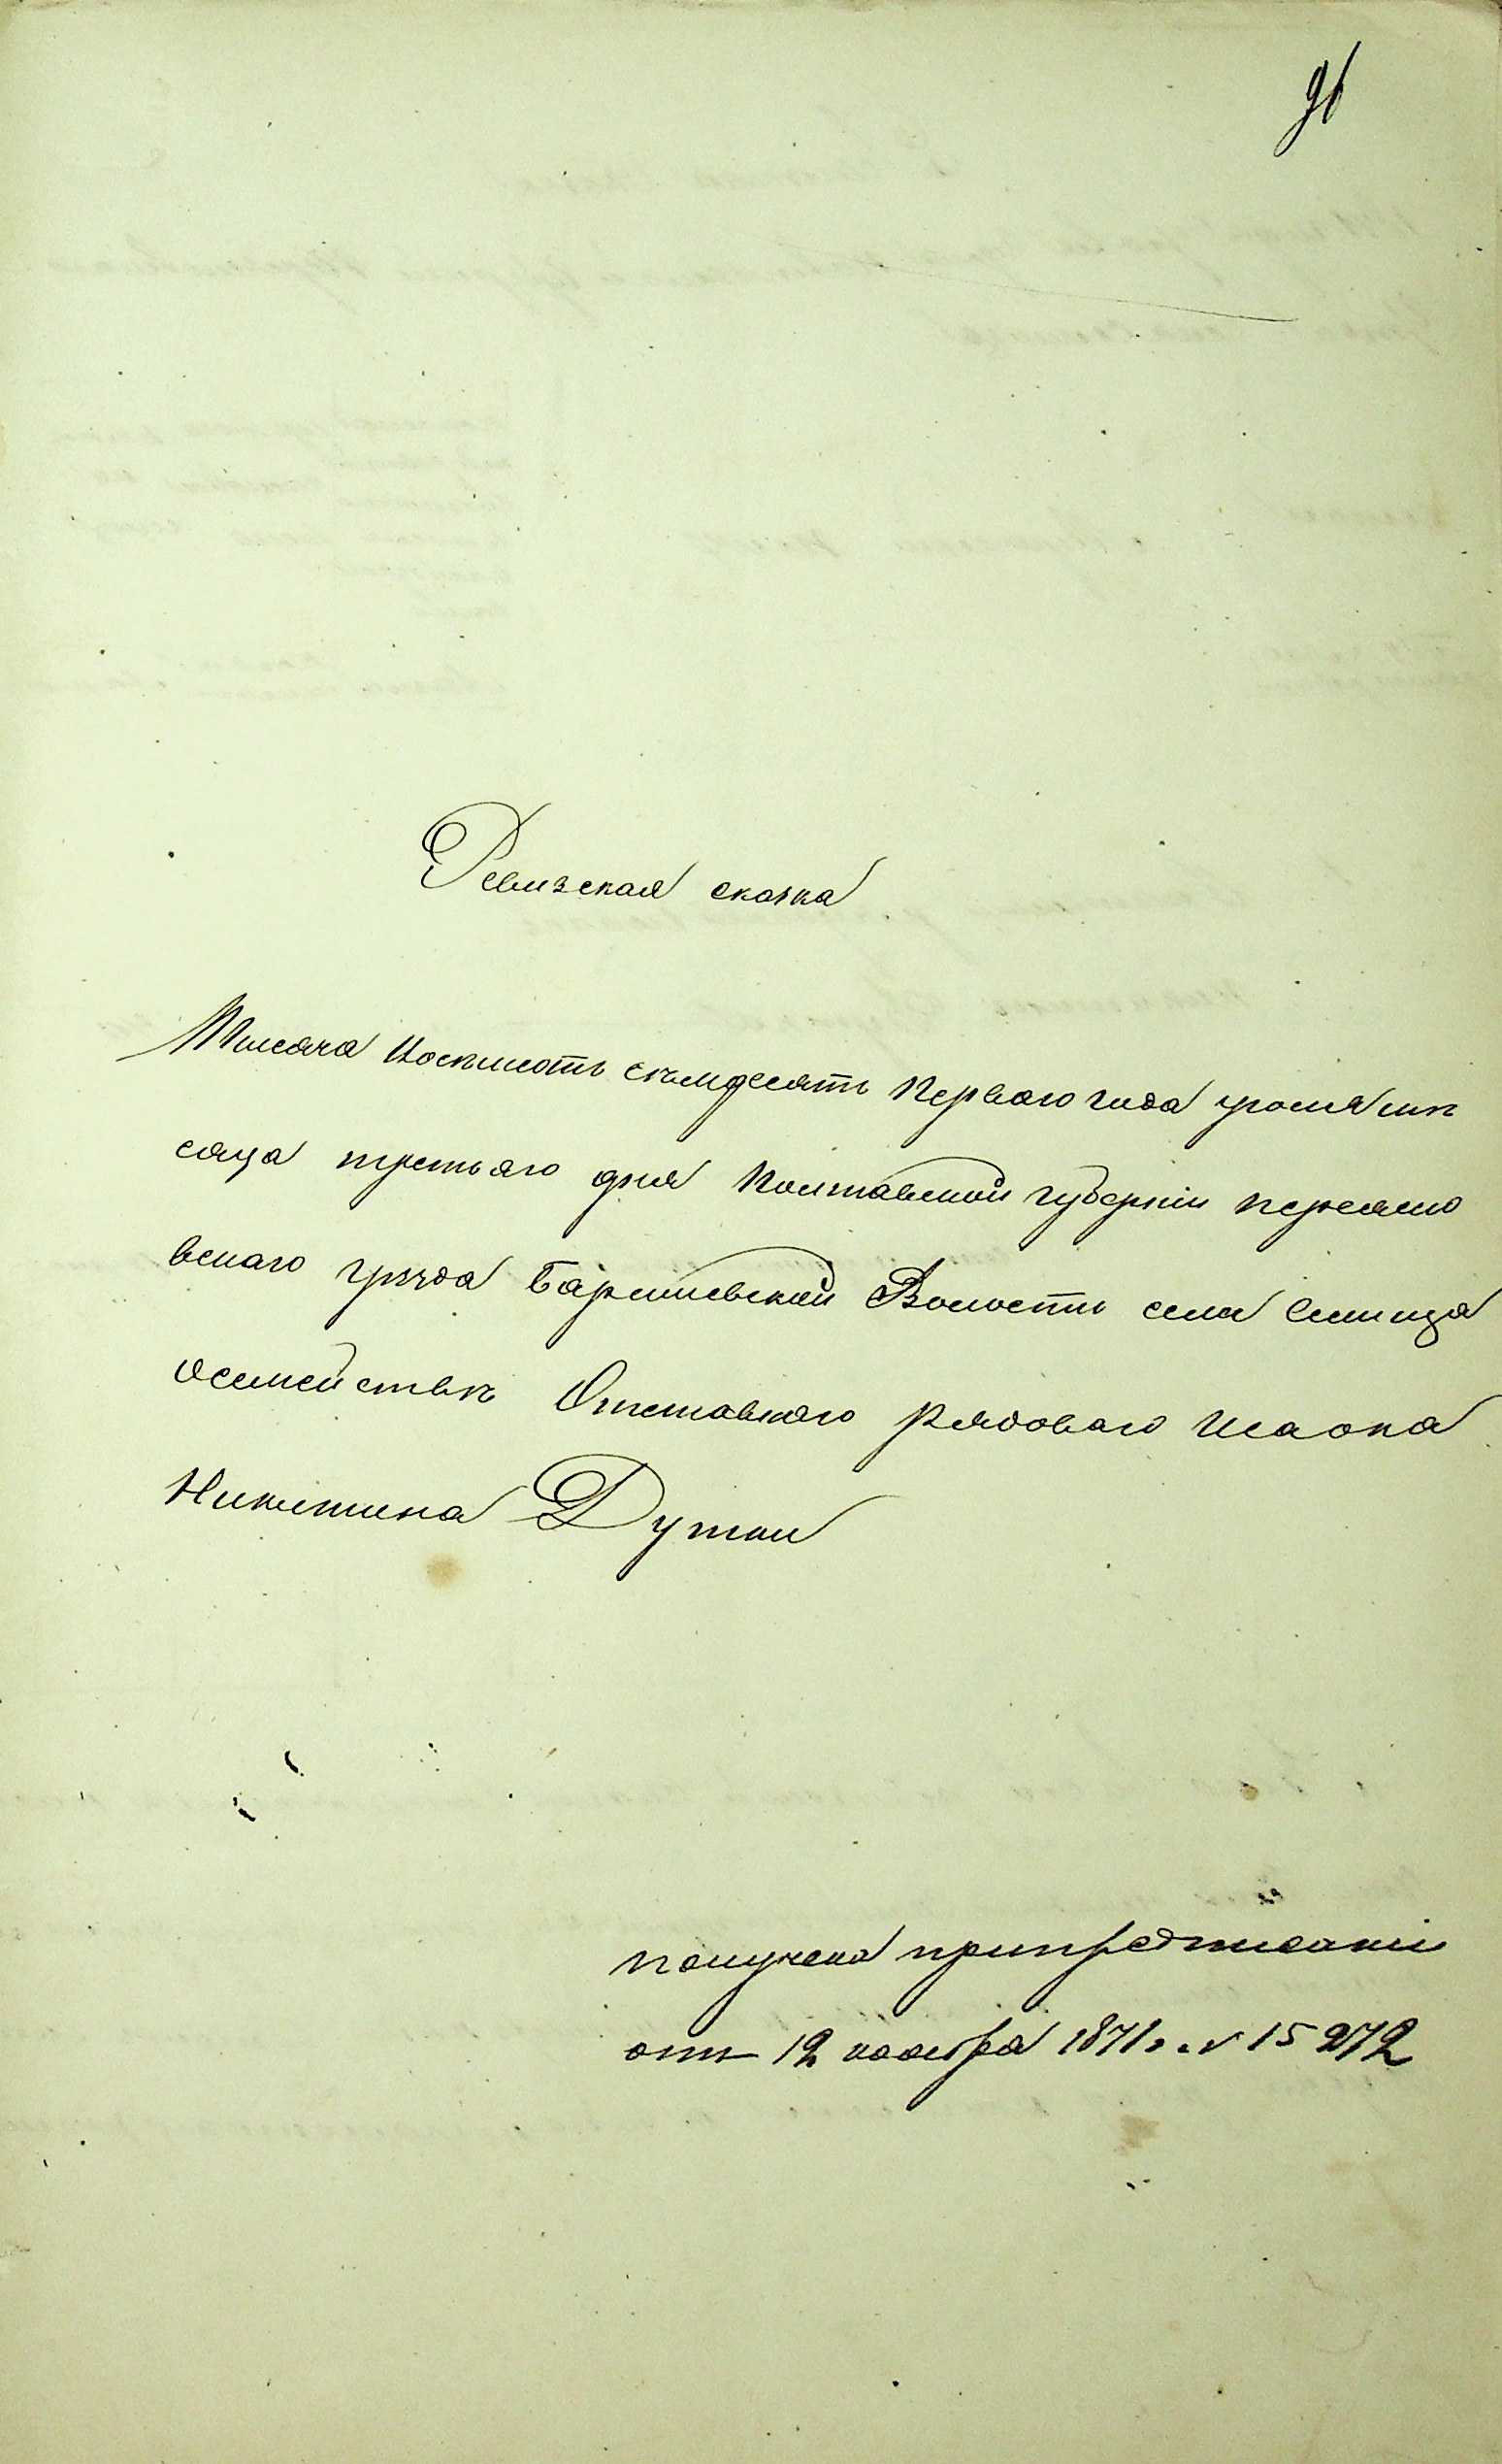 91
Ревизская сказка
Тисяча восьмсотъ семдесятъ первого года июня мѣ
сяца третьяго дня Полтавской губерніи Переясло
вскаго уѣзда Баришевской Волости села Селища
осемействѣ Отставнаго рядоваго Исаока
Никитина Дутки
получена припредписаніи
отъ 12 ноября 1871 г. № 15272